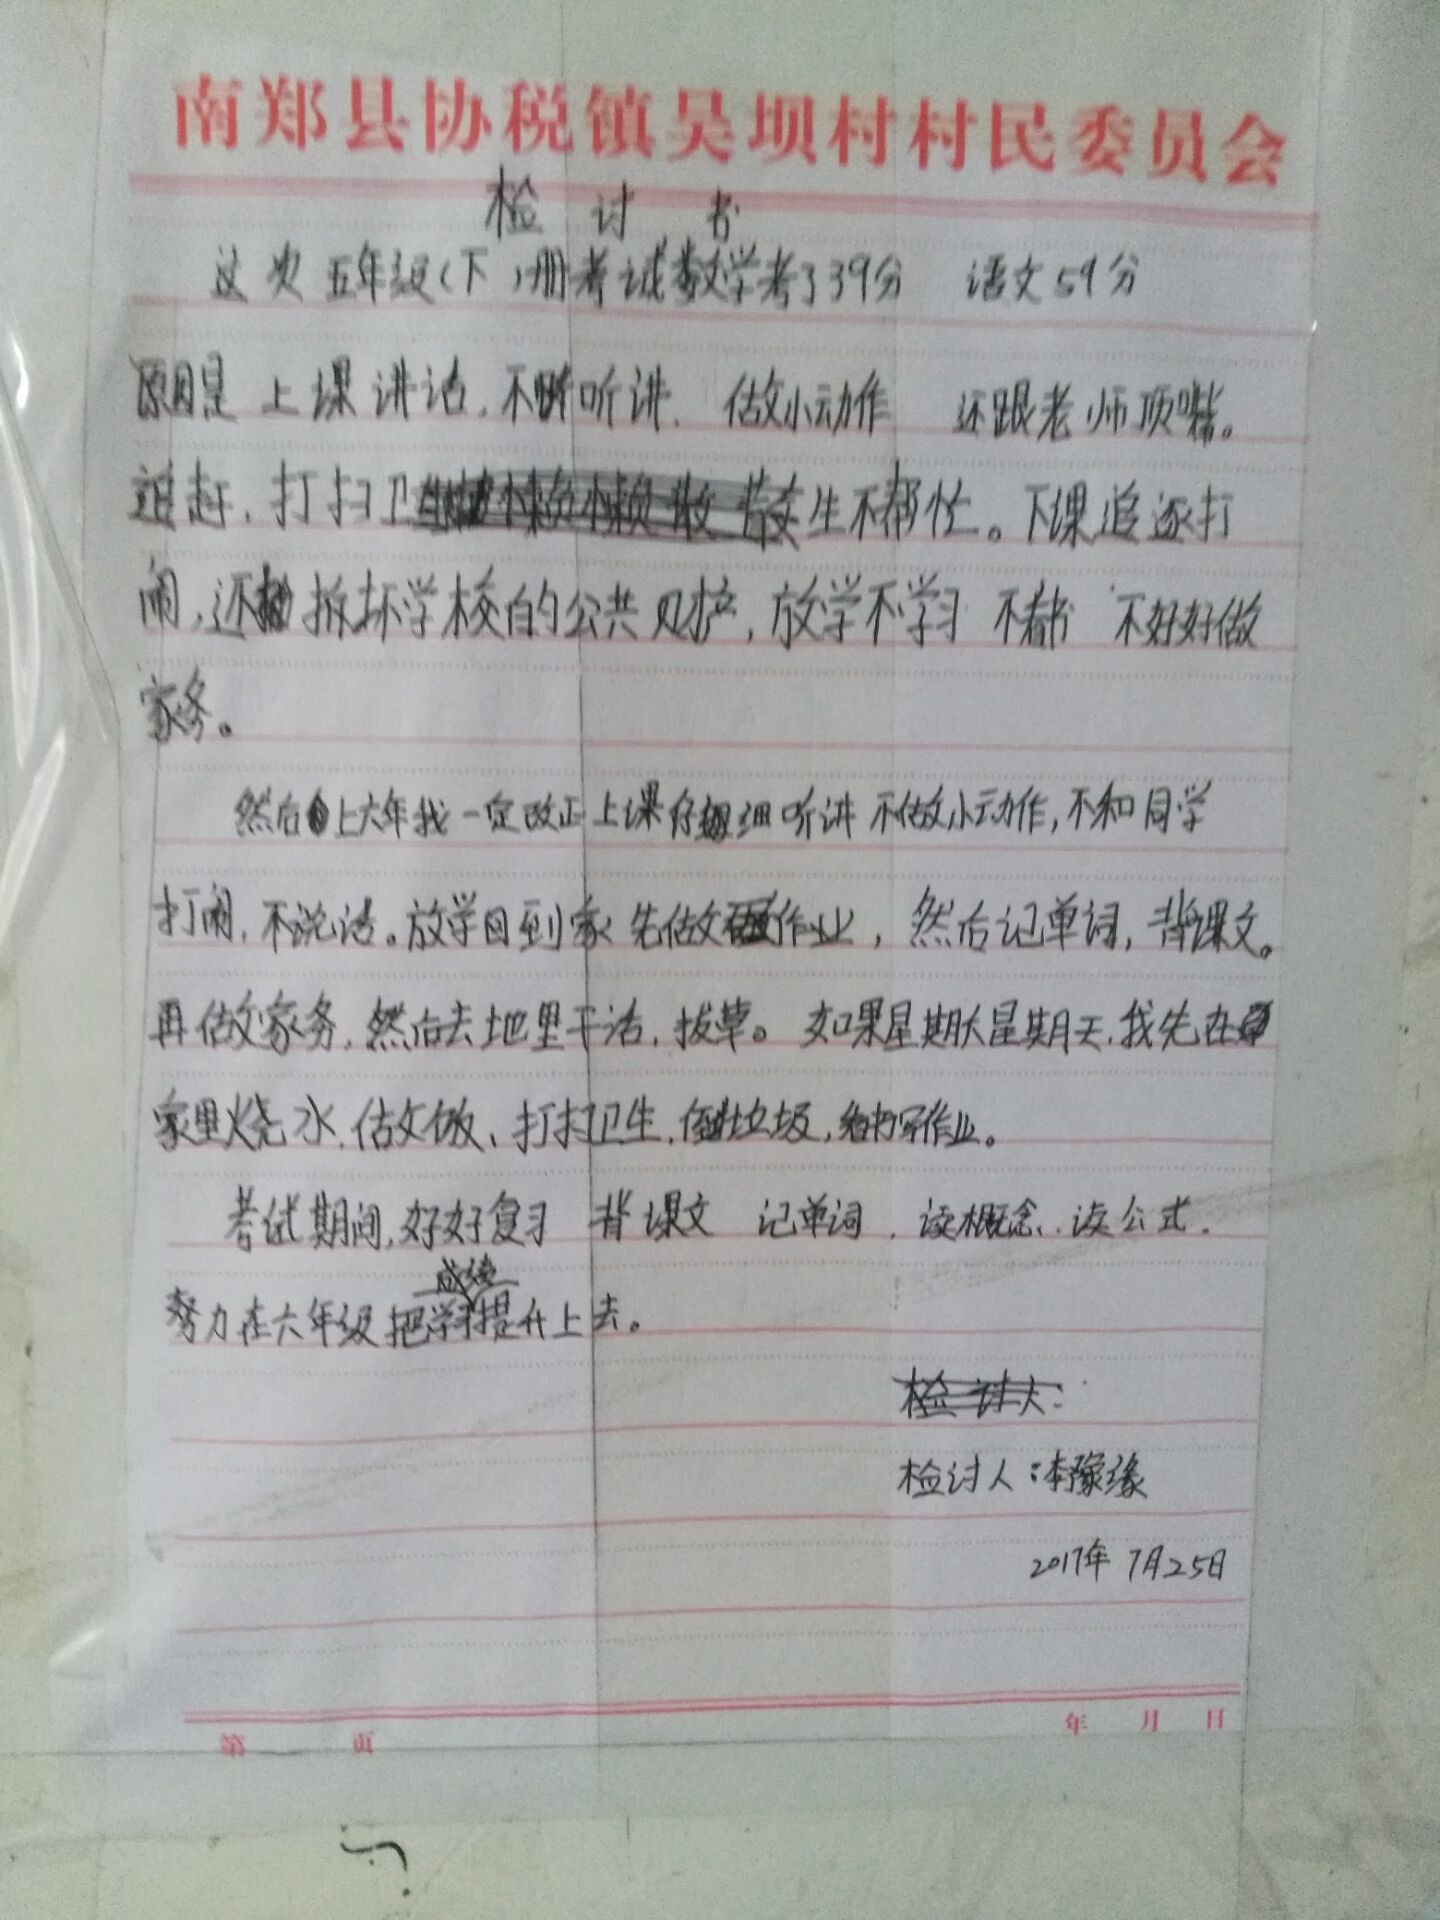 南郑县协税镇吴坝村村民委员会
检讨书
这次五年级(下)册考试数学考了39分 语文59分
原因是上课讲话,不听讲. 做小动作 还跟老师顶嘴。
追赶,打扫卫生不帮忙。下课追逐打
闹,还拆坏学校的公共财产,放学不学习 不看书 不好好做
家务。
然后上六年我一定改正上课仔细听讲不做小动作,不和同学
打闹,不说话。放学回到家先做作业,然后记单词,背课文。
再做家务,然后去地里干活,拔草。如果星期六星期天,我先在
家里烧水,做饭、打扫卫生,倒垃圾,看书写作业。
考试期间,好好复习 背课文 记单词,读概念、读公式.
努力在六年级把学习成绩提升上去。
检讨人:李豫缘
2017年7月25日
第 页 年 月 日